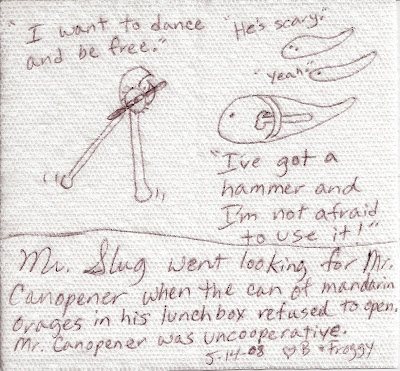 "I want to dance
and be free."
"He's scary."
"Yeah"
"I've got a
hammer and
I'm not afraid
to use it!"
Mr. Slug went looking for Mr.
Canopener when the can of mandarin
orages in his lunchbox refused to open.
Mr. Canopener was uncooperative.
5-14-08 ♡B + Froggy